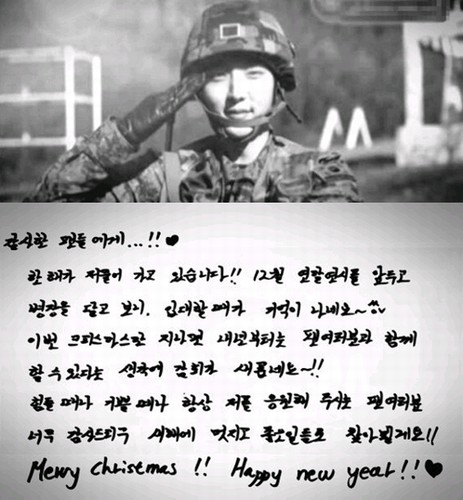 감사한 팬들에게...!!♥
한 해가 저물어 가고 있습니다!! 12월 연말연시를 앞두고
병장을 달고 보니, 입대할때가 기억이 나네요~^^
이번 크리스마스만 지나면 내년부터는 팬여러분과 함께
할 수 있다는 생각에 감회가 새롭네요~!!
힘들때나 기쁠때나 항상 저를 응원해 주시는 팬여러분
너무 감사드리구 새해에 멋지고 좋은일들로 찾아뵐게요!!
Merry Christmas!! Happy new year!!♥